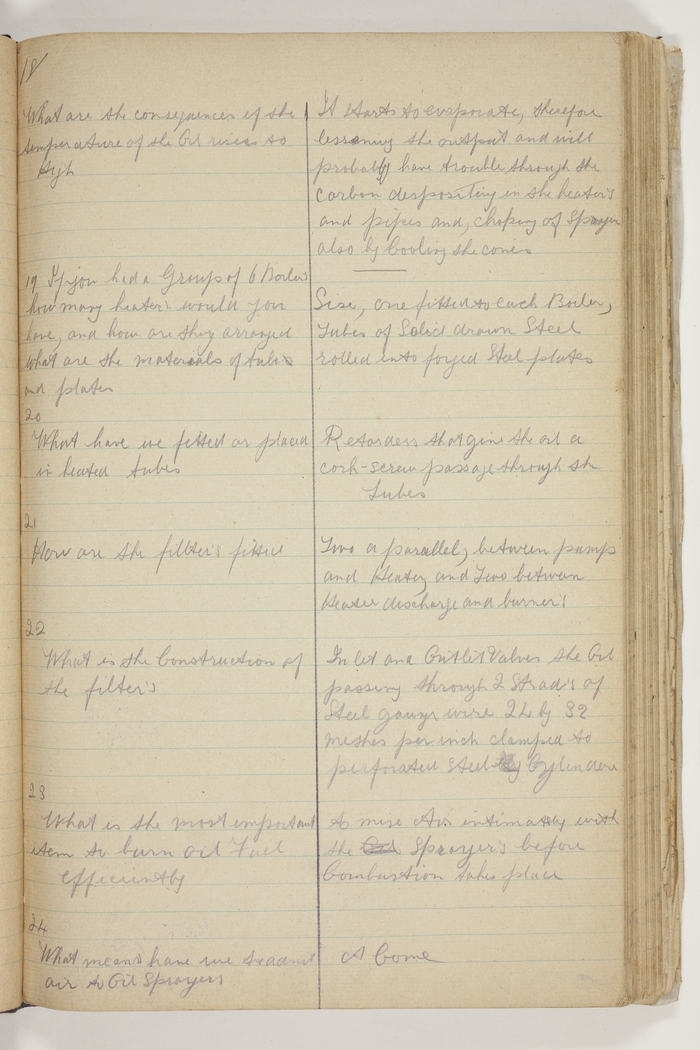 18
What are the consequences of the
temperature of the Oil rises to
high
It starts to evaporate, therefore
lessening the output and will
probably have trouble through the
Carbon despositing in the heater's
and pipes and, choking of Sprayer
also by Cooling the cones
19 If you had a Group of 6 Boiler's
how many heater's would you
have, and how are they arranged
what are the materials of tubes
and plates
Six, one fitted to each Boiler,
Tubes of Solid drawn Steel
rolled into forged Steel plates
20
What have we fitted or placed
in heated tubes
Retarders that give the oil a
cork-screw passage through the
Tubes
21
How are the fillter's fitted
Two a parallel, between pump
and Heater, and Two between
Heater discharge and burner's
22
What is the Construction of
the filter's
Inlet and Outlet Valves the Oil
passing through 2 Strads of
Steel gauze wire 24 by 32
meshes per inch clamped to
perforated steel Cylinders
23
What is the most important
item to burn oil Fuel
Efficiently
To mise Air intimatly with
the Sprayer's before
Combustion takes place
24
What means have we to admit
air to Oil Sprayers
A Cone